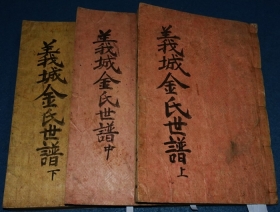 義城金氏世譜 上
義城金氏世譜 中
義城金氏世譜 下